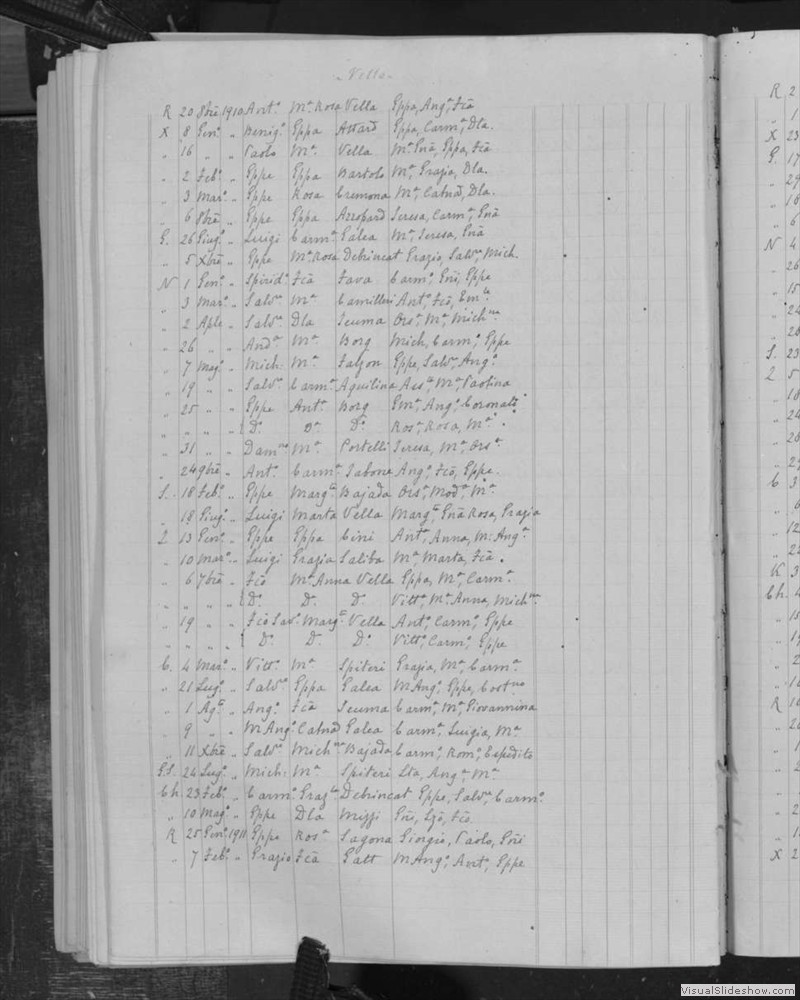 Vella
R 20 8bre 1910 Ant.o M.a Rosa Vella Eppa, Ang.a, Fca
X 8 Gen.o " Benig.o Eppa Attard Eppa, Carm.a, Dla.
" 16 " " Paolo M.a Vella M.a Gnã, Eppa, Fca
" 2 Feb.o " Eppe Eppa Bartolo M.a, Grazia, Dla.
" 3 Mar.o " Eppe Rosa Cremona M.a, Catnã, Dla.
" 6 8bre " Eppe Eppa Azzopard Teresa, Carm.a, Gnã
G. 26 Giug.o " Luigi Carm.a Galea M.a, Teresa, Gnã
" 5 Xbre " Eppe M.a Rosa Debrincat Grazia, Salv.a, Mich.
N 1 Gen.o " Spirid.e Fca Fava Carm.o, Gni, Eppe
" 3 Mar.o " Salv.e M.a Camilleri Ant.o, Fco, Em.le
" 2 Aple " Salv.e Dla Scuma M.a, Mich.na
" 26 " " And.a M.a Borg Mich, Carm.o, Eppe
" 7 Mag.o " Mich. M.a Falzon Eppe, Salv.e, Ang.o
" 19 " " Salv.e Carm.a Aquilina Ass.ta, M.a, Paolina
" 25 " " Eppe Ant.a Borg Em.a, Ang.o, Coronato
" " " " { D.o D.o D.o Ros.a, Rosa, M.a
" 31 " " Dam.no M.a Portelli Teresa, M.a
" 24 9bre " Ant.o Carm.a Tabone Ang.o, Fco, Eppe.
S. 18 Feb.o " Eppe Marg.ta Bajada M.a
" 18 Giug.o " Luigi Marta Vella Marg.ta, Gnã Rosa, Grazia
Z 13 Gen.o " Eppe Eppa Cini Ant.a, Anna, M. Ang.a
" 10 Mar.o " Luigi Grazia Saliba M.a, Marta, Fca
" 6 7bre " Fco M.a Anna Vella Eppa, M.a, Carm.a
" " " " { D.o D.o D.o Vitt.a, M.a Anna, Mich.na
" 19 " " Fco Sav.o Marg.ta Vella Ant.o, Carm.o, Eppe
" " " " { D.o D.o D.o Vitt.o, Carm.o, Eppe
C. 4 Mar.o " Vitt.o M.a Spiteri Grazia, M.a, Carm.a
" 21 Lug.o " Salv.e Eppa Galea M Ang.o, Eppe
" 1 Ag.o " Ang.o Fca Scuma Carm.a, M.a, Giovannina
" 9 " M Ang.o Catnã Galea Carm.a, Luigia, M.a
" 11 Xbre " Salv.e Mich.na Bajada Carm.o, Rom.o, Espedito
G.S. 24 Lug.o " Mich. M.a Spiteri Lta, Ang.a, M.a
Ch. 23 Feb.o " Carm.o Graz.la Debrincat Eppe, Salv.e, Carm.o
" 10 Mag.o " Eppe Dla Mizzi Gni, Fco
R 25 Gen.o 1911 Eppe Ros.a Sagona Giorgio, Paolo, Gni
" 7 Feb.o " Grazio Fca Galt M Ang.o, Ant.o, Eppe
VisualSlideshow.com